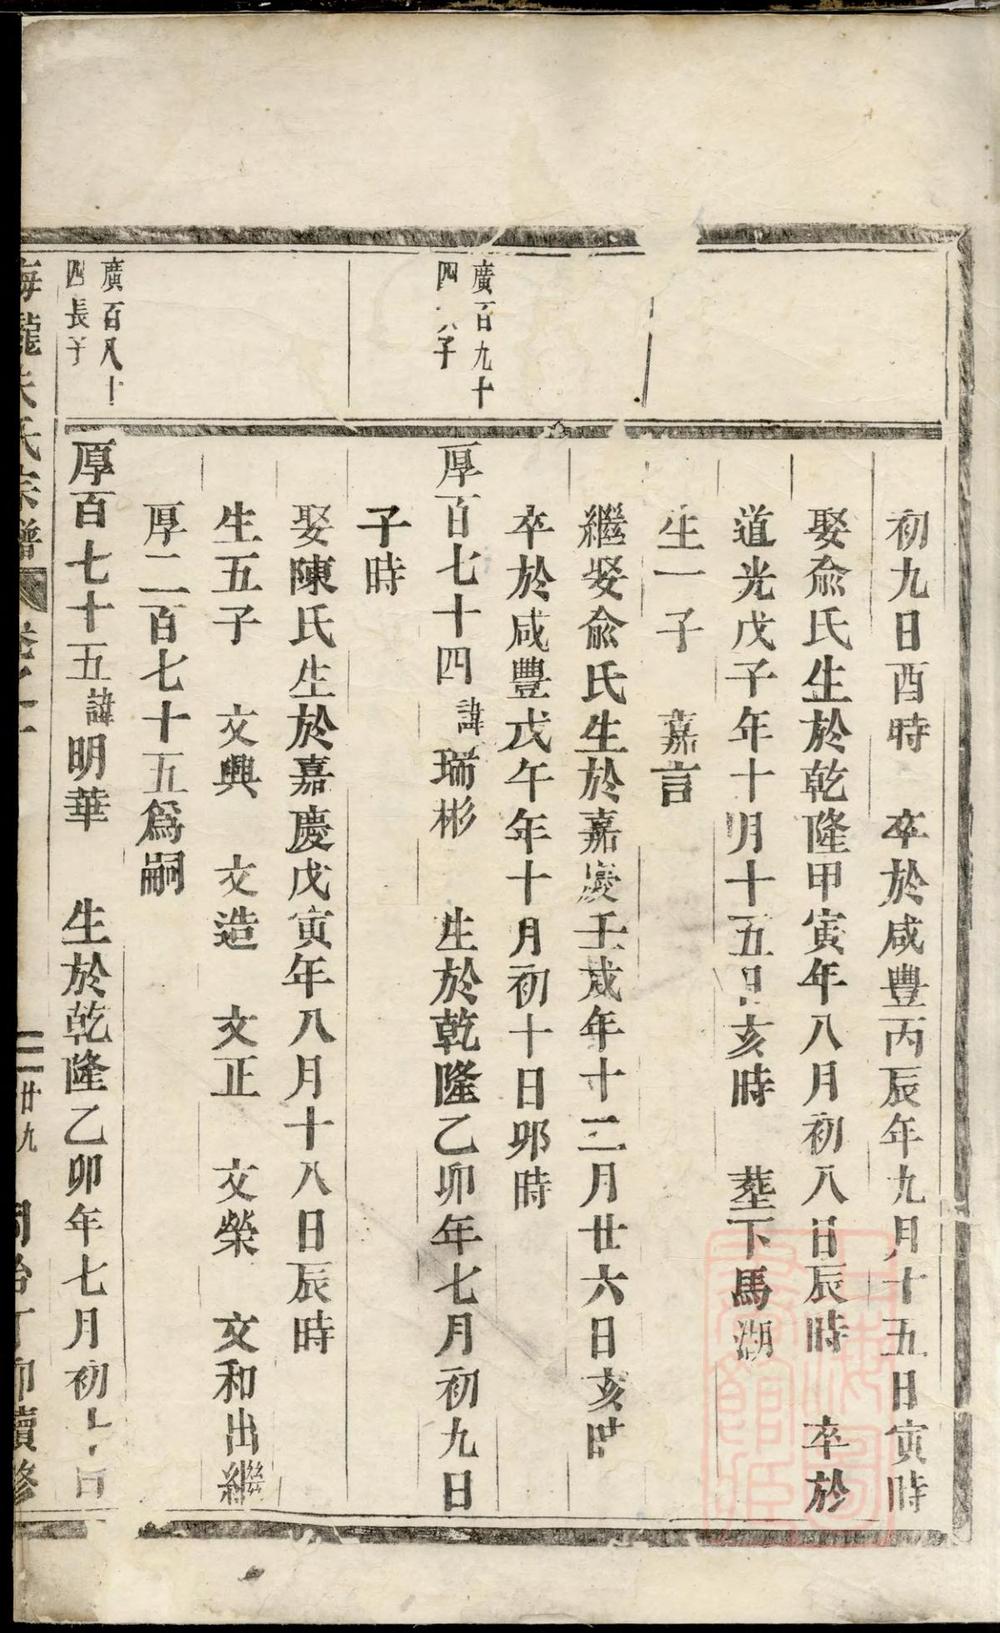 初九日酉時　卒於咸豐丙辰年九月十五日寅時
娶俞氏生於乾隆甲寅年八月初八日辰時　卒於
道光戊子年十月十五日亥時　塟下馬湖
生一子　嘉言
繼娶俞氏生於嘉慶壬戌年十二月廿六日亥時
卒於咸豐戊午年十月初十日卯時
廣百九十
四 子
厚百七十四諱瑞彬　生於乾隆乙卯年七月初九日
子時
娶陳氏生於嘉慶戊寅年八月十八日辰時
生五子　文興　文造　文正　文榮　文和出繼
厚二百七十五爲嗣
廣百八十
四長子
厚百七十五諱明華　生於乾隆乙卯年七月初 日
氏宗譜　卷之　廿九　同治丁卯續修